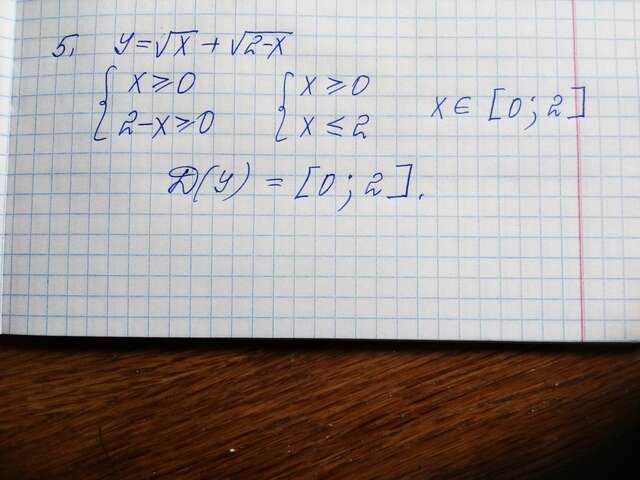 5. y=√x + √2-x
{ x ≥ 0 { x ≥ 0 x ∈ [0; 2]
2-x ≥ 0 x ≤ 2
D(y) = [0; 2].